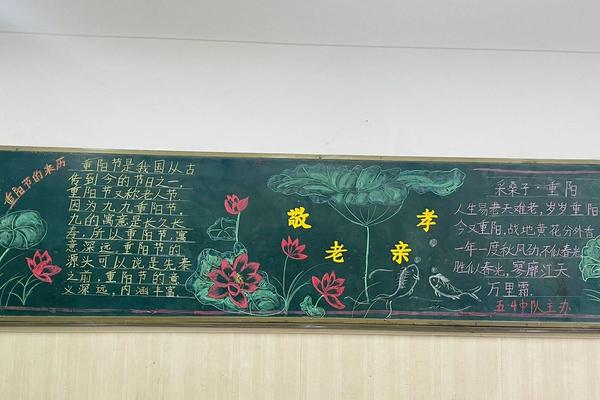 重阳节的来历
重阳节是我国从古
传到今的节日之一，
重阳节又称老人节，
因为九九重阳节，
九的寓意是长久长
寿，所以重阳节，寓
意深远，重阳节的
源头可以说是先秦
之前，重阳节的意
义深远，内涵丰富
敬 孝
老 亲
采桑子·重阳
人生易老天难老，岁岁重阳
今又重阳，战地黄花分外香
一年一度秋风劲，不似春光
胜似春光，寥廓江天
万里霜
五·4中队主办